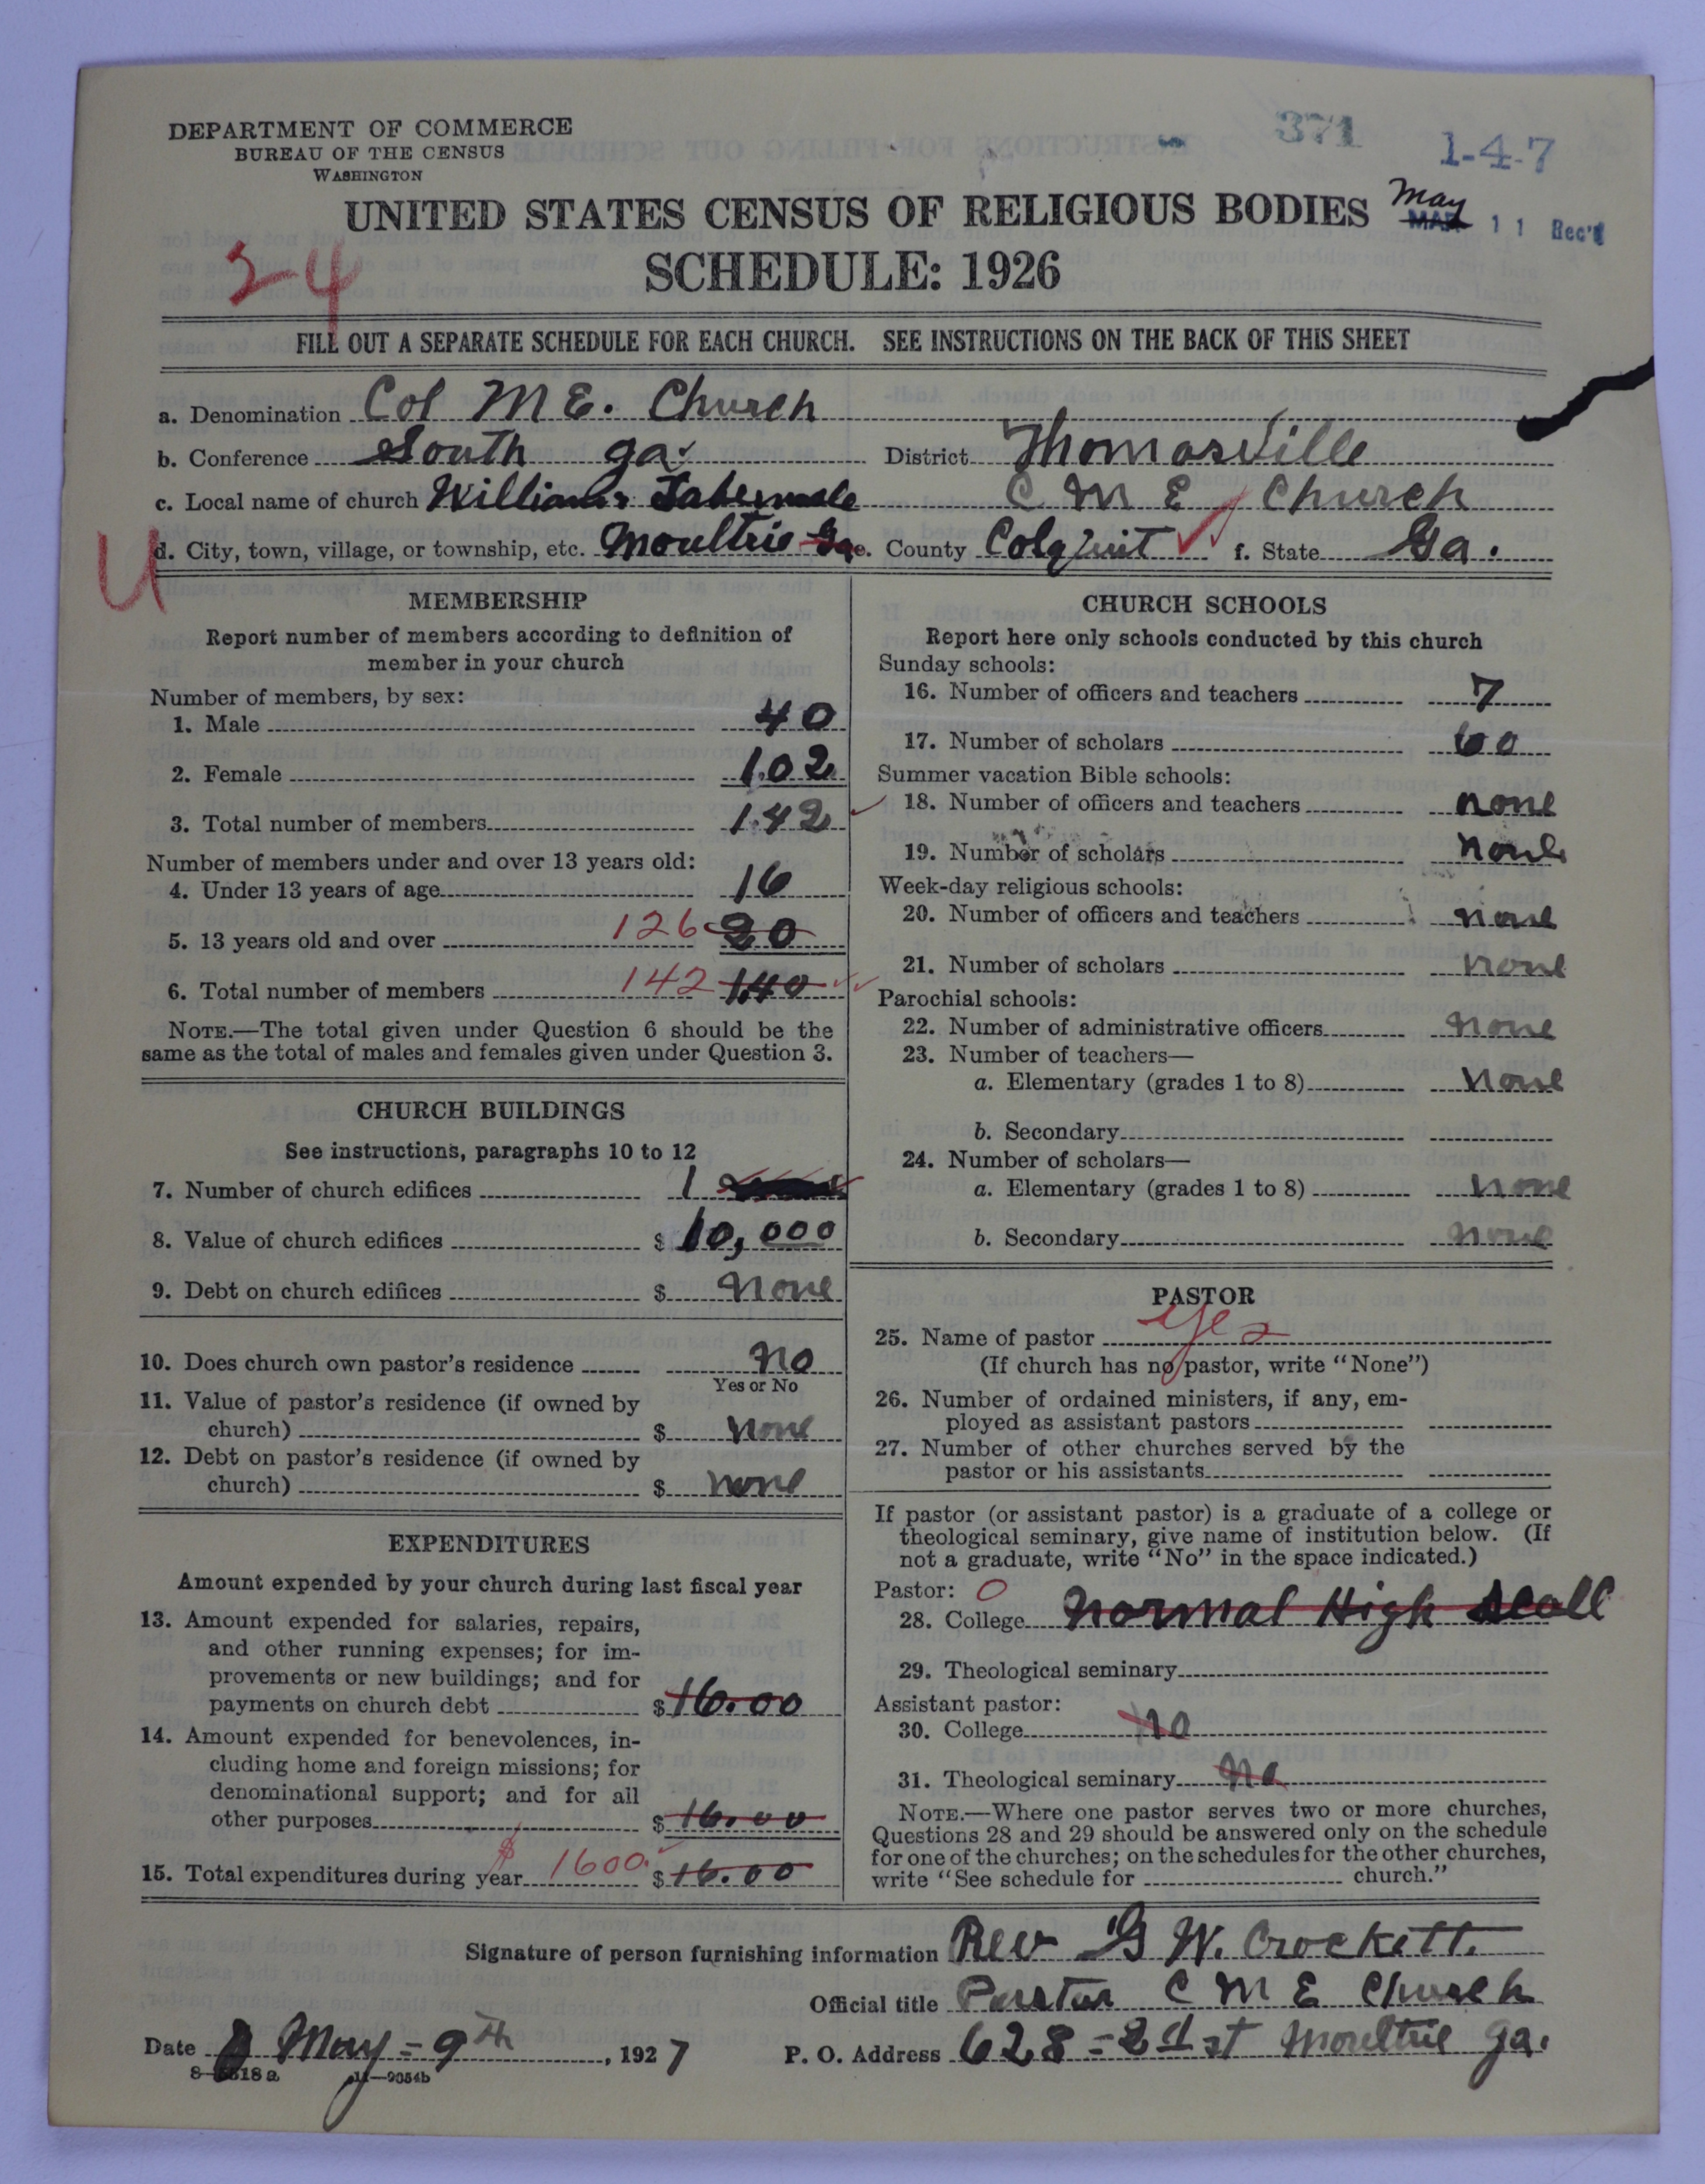 371
1-4-7
DEPARTMENT OF COMMERCE
BUREAU OF THE CENSUS
WASHINGTON
UNITED STATES CENSUS OF RELIGIOUS BODIES
May
MAR 11 Rec'd
SCHEDULE: 1926
24
FILL OUT A SEPARATE SCHEDULE FOR EACH CHURCH. SEE INSTRUCTIONS ON THE BACK OF THIS SHEET
a. Denomination Col M E. Church
b. Conference South ga. District Thomasville
c. Local name of church Williams Tabernacle C M E Church
U
d. City, town, village, or township, etc. Moultrie Ga e. County Colquit f. State Ga.
MEMBERSHIP
Report number of members according to definition of
member in your church
Number of members, by sex:
1. Male 40
2. Female 102
3. Total number of members 142
Number of members under and over 13 years old:
4. Under 13 years of age 16
5. 13 years old and over 126 20
6. Total number of members 142 140
NOTE.—The total given under Question 6 should be the
same as the total of males and females given under Question 3.
CHURCH BUILDINGS
See instructions, paragraphs 10 to 12
7. Number of church edifices 1
8. Value of church edifices $ 10,000
9. Debt on church edifices $ None
10. Does church own pastor's residence No
Yes or No
11. Value of pastor's residence (if owned by
church) $ None
12. Debt on pastor's residence (if owned by
church) $ none
EXPENDITURES
Amount expended by your church during last fiscal year
13. Amount expended for salaries, repairs,
and other running expenses; for im-
provements or new buildings; and for
payments on church debt $ 16.00
14. Amount expended for benevolences, in-
cluding home and foreign missions; for
denominational support; and for all
other purposes $ 16.00
15. Total expenditures during year $ 1600. $ 16.00
CHURCH SCHOOLS
Report here only schools conducted by this church
Sunday schools:
16. Number of officers and teachers 7
17. Number of scholars 60
Summer vacation Bible schools:
18. Number of officers and teachers none
19. Number of scholars none
Week-day religious schools:
20. Number of officers and teachers none
21. Number of scholars none
Parochial schools:
22. Number of administrative officers none
23. Number of teachers—
a. Elementary (grades 1 to 8) none
b. Secondary
24. Number of scholars—
a. Elementary (grades 1 to 8) none
b. Secondary none
PASTOR
25. Name of pastor yes
(If church has no pastor, write "None")
26. Number of ordained ministers, if any, em-
ployed as assistant pastors
27. Number of other churches served by the
pastor or his assistants
If pastor (or assistant pastor) is a graduate of a college or
theological seminary, give name of institution below. (If
not a graduate, write "No" in the space indicated.)
Pastor: 0
28. College Normal High Scoll
29. Theological seminary
Assistant pastor:
30. College No
31. Theological seminary No
NOTE.—Where one pastor serves two or more churches,
Questions 28 and 29 should be answered only on the schedule
for one of the churches; on the schedules for the other churches,
write "See schedule for church."
Signature of person furnishing information Rev G W. Crockett.
Official title Pastor C M E Church
Date May = 9th, 1927 P. O. Address 628 = 2 st Moultrie ga.
11—9054b